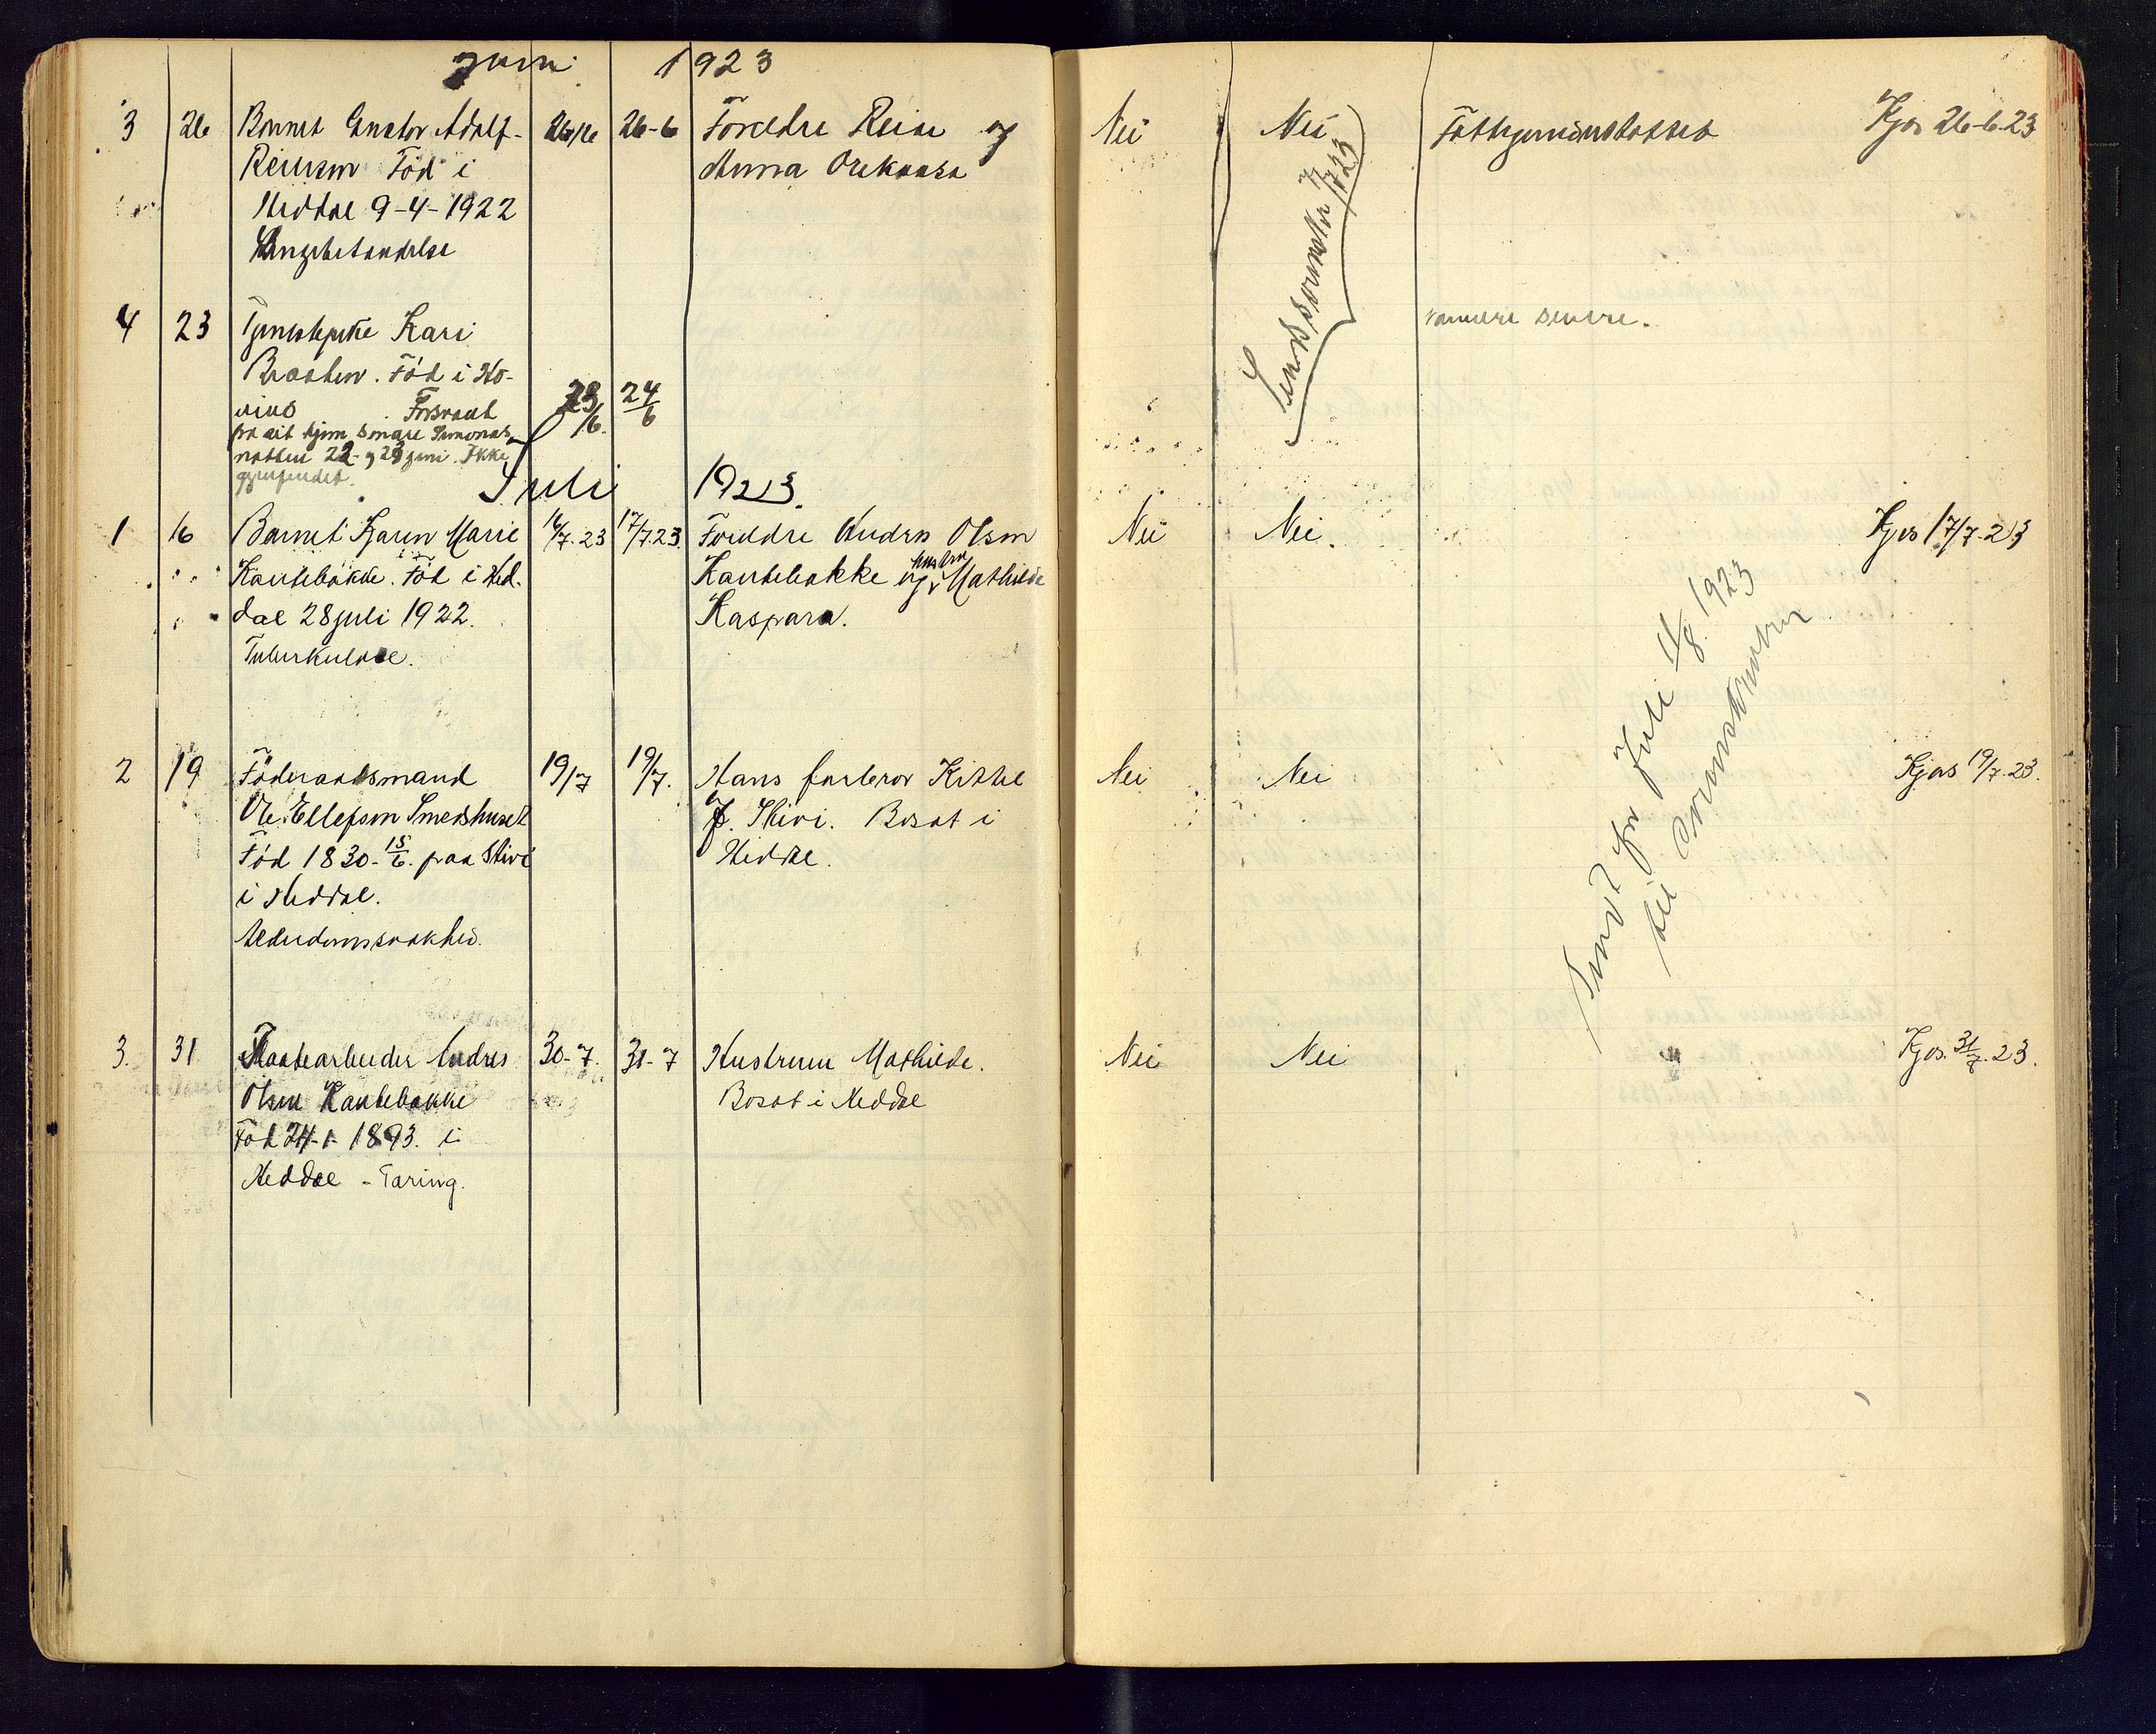 Juni 1923
3 26 Barnet Gustav Adolf 26/6 26-6 Foreldre Reine og Nei Nei Fattigunderstøttet Kjos 26-6-23
Reinesen Föd i Anna Orekaasa
Heddal 9-4-1922
Lungebetændelse
Sendt Sorenskr 7/7 23
4 23 Tjenestepike Kari
Braaten. Föd i Ho- 23/6. 24/6
vind Forsvant
fra sit hjem
natten 22- og 23 juni. Ikke
gjenfundet.
Juli 1923.
1 16 Barnet Karen Marie 16/7-23 17/7.23. Foreldre Andres Olsen Nei Nei. Kjos 17/7-23
Kastebakke. Föd i Hed- Kastebakke og hustru Mathilde
dal 28 juli 1922. Kaspara.
Tuberkulose.
2 19 Föderaadsmand 19/7 19/7. Hans farbror Kittil Nei Nei Kjos 19/7-23.
Ole Ellefsen Smedshuset J. Skivi. Bosat i
Föd 1830-15/6. paa Skivi Heddal.
i Heddal.
Alderdomssvakhed.
Sendt for Juli 11/8 1923
til Sorenskriveren
3. 31 Andres 30-7. 31-7 Hustruen Mathilde. Nei Nei Kjos. 31/7-23.
Olsen Kastebakke Bosat i Heddal
Föd 24-1- 1893. i
Heddal - Tæring.